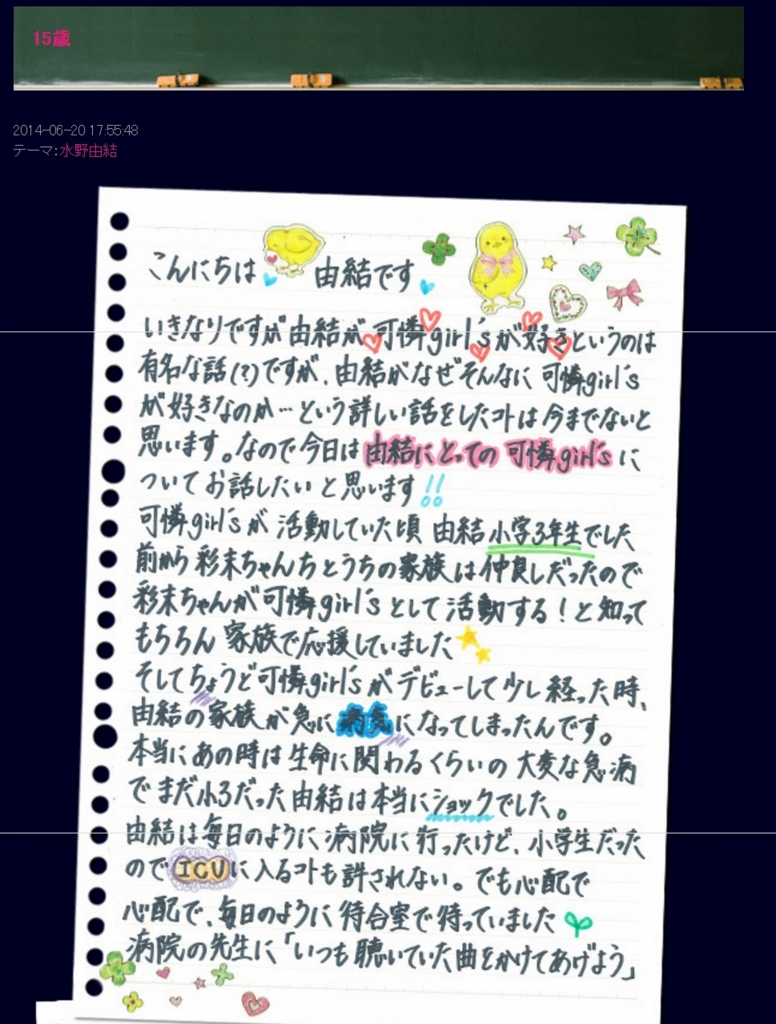 15歳
2014-06-20 17:55:48
テーマ:水野由結
こんにちは 由結です
いきなりですが由結が可憐girl'sが好きというのは
有名な話(?)ですが、由結がなぜそんなに 可憐girl's
が好きなのか…という詳しい話をしたコトは今までないと
思います。なので今日は由結にとっての 可憐girl'sに
ついてお話したいと思います!!
可憐girl'sが 活動していた頃 由結小学3年生でした
前から 彩未ちゃんちとうちの家族は仲良しだったので
彩未ちゃんが可憐girl'sとして活動する!と知って
もちろん 家族で応援していました
そしてちょうど可憐girl'sがデビューして少し経った時、
由結の家族が急に病気になってしまったんです。
本当にあの時は生命に関わるくらいの大変な急病
でまだ小3だった由結は本当にショックでした。
由結は毎日のように病院に行ったけど、小学生だった
のでICUに入るコトも許されない。でも心配で
心配で、毎日のように待合室で待っていました
病院の先生に「いつも聴いていた曲をかけてあげよう」